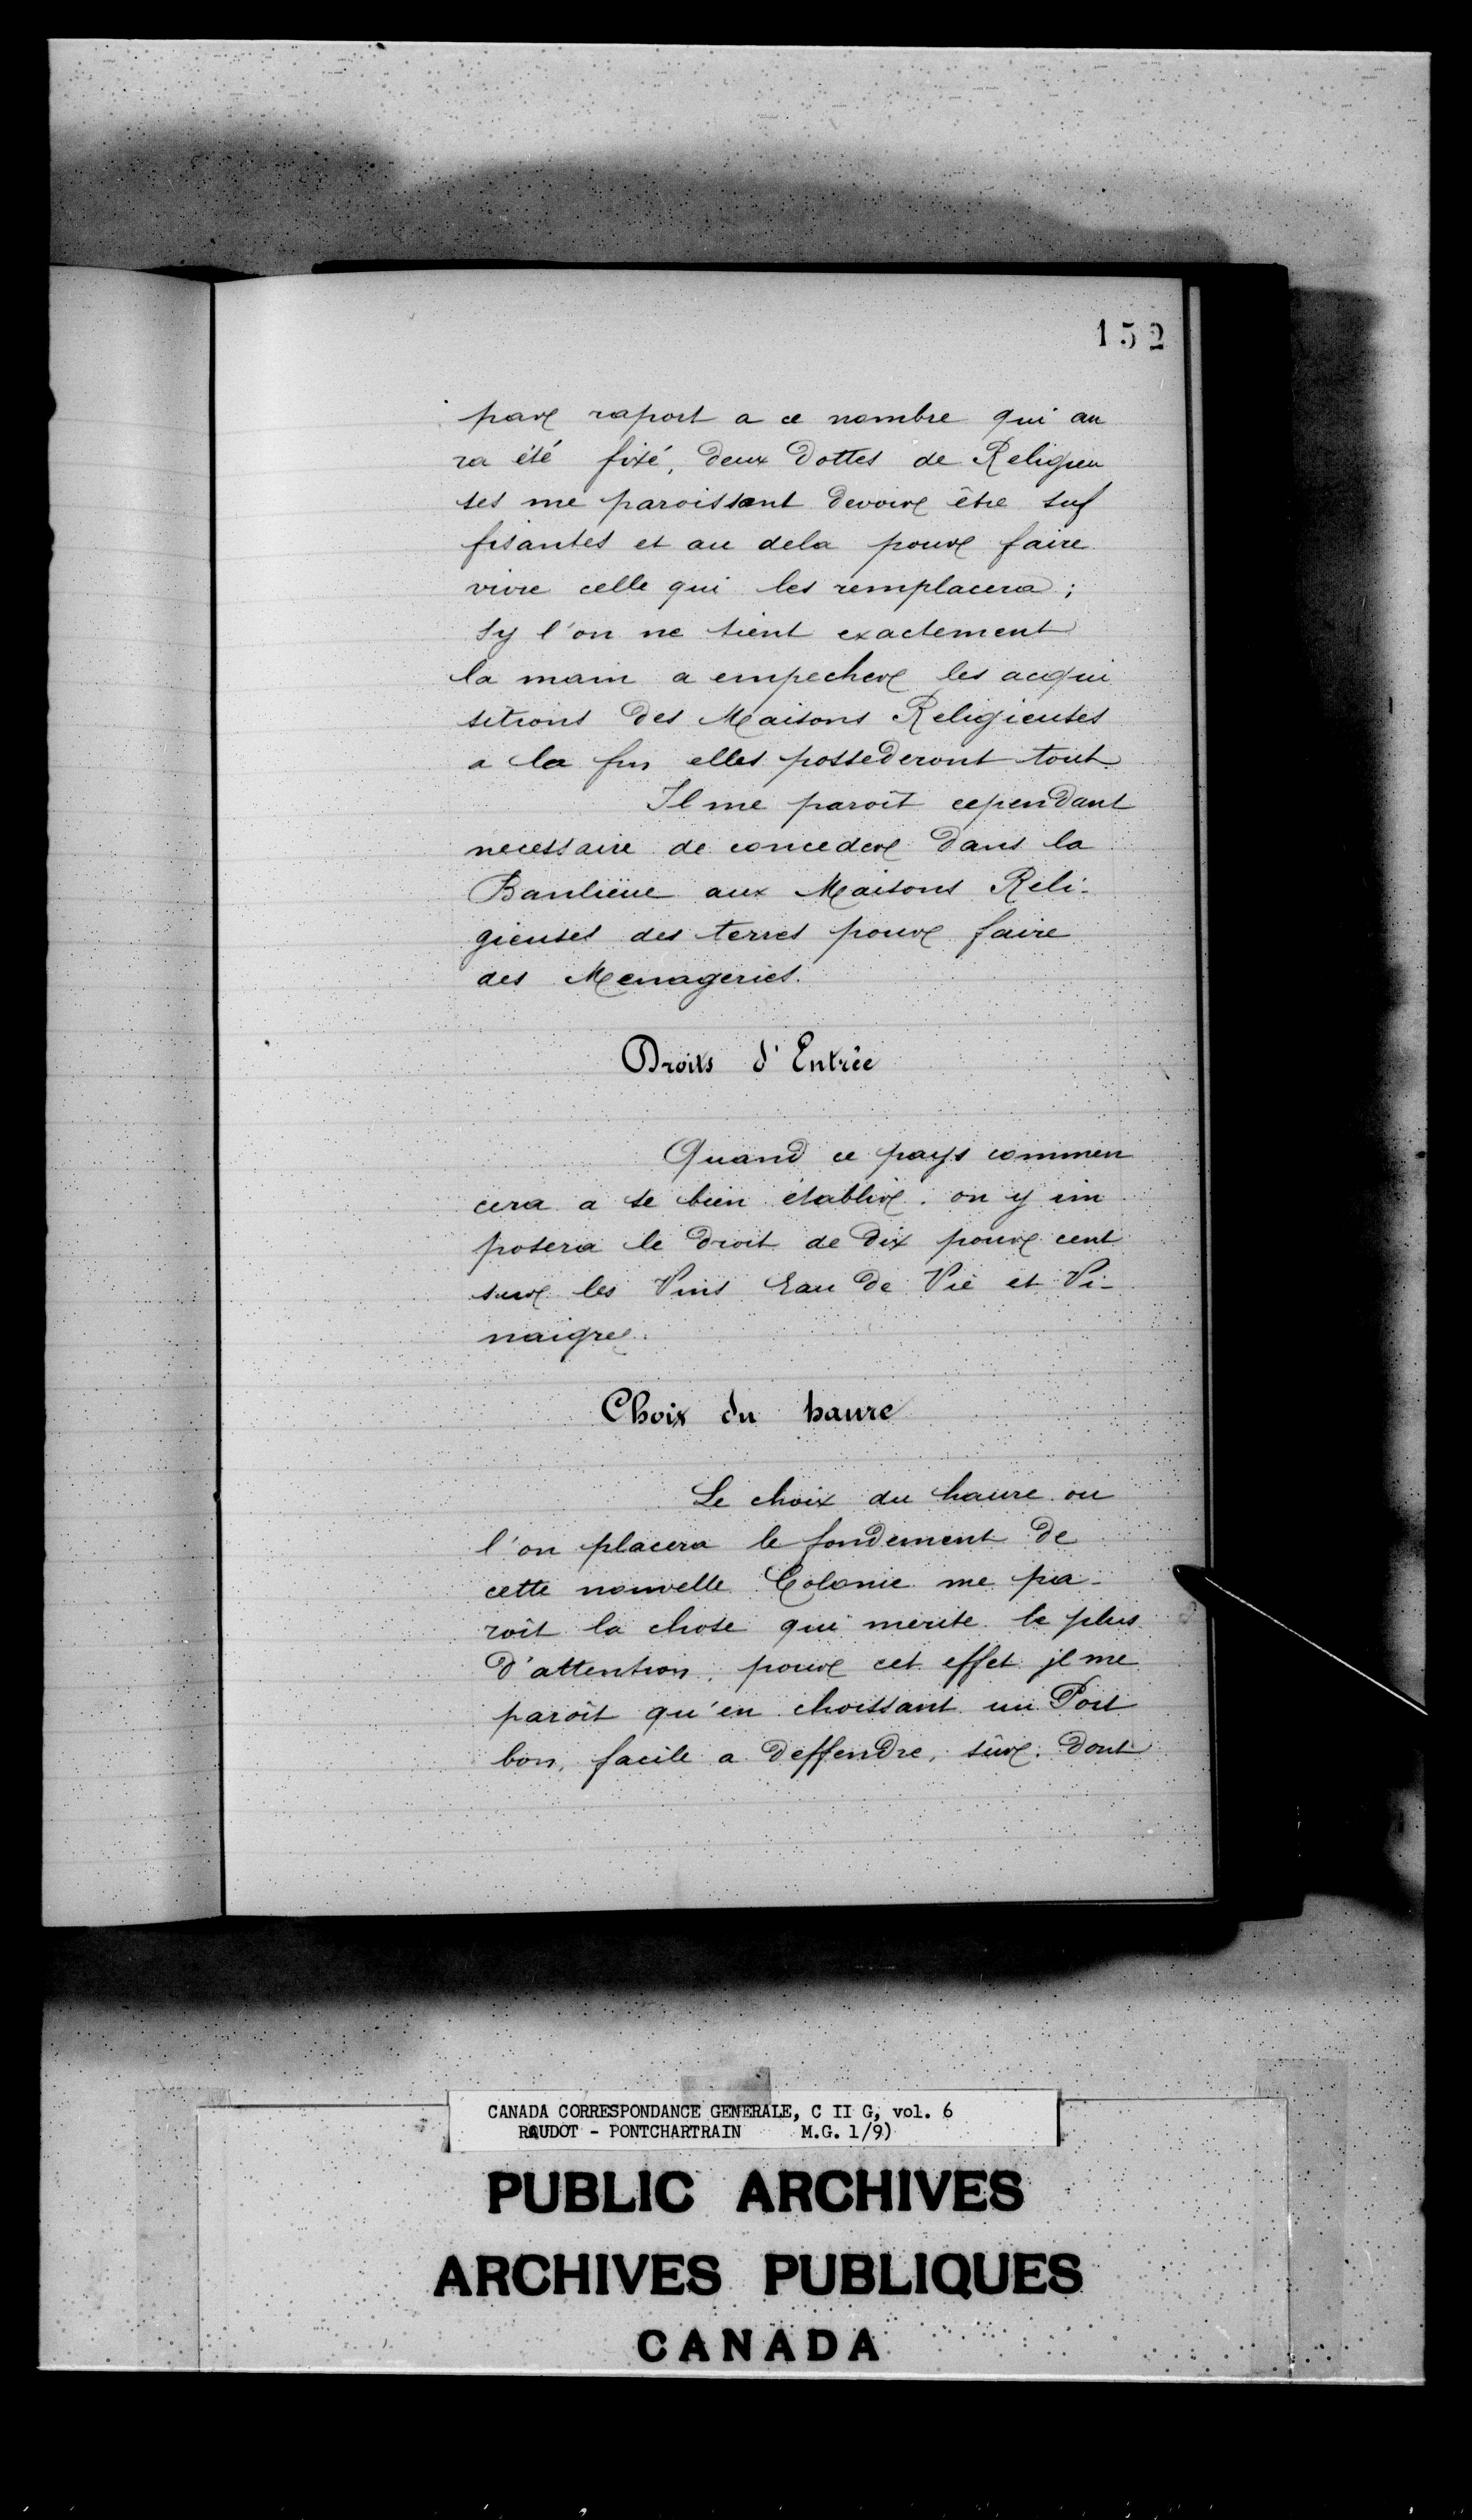 152
par raport a ce nombre qui au
ra été fixé, deux Dottes de Religieu
ses me paroissent devoir être suf
fisantes et au dela pour faire
vivre celle qui les remplacera ;
Sy l'on ne tient exactement
la main a empecher les acqui
sitions des Maisons Religieuses
a la fin elles possederont tout.
Il me paroît cependant
necessaire de conceder dans la
Banlieüe aux Maisons Reli-
gieuses des terres pour faire
des Menageries.
Droits d'Entrée
Quand ce pays commen
cera a se bien établir. on y im
posera le Droit de Dix pour cent
sur les Vins Eau De Vie et Vi-
naigre.
Choix du haure
Le choix du haure ou
l'on placera le fondement de
cette nouvelle Colonie me pa-
roît la chose qui merite le plus
d'attention, pour cet effet jl me
paroît qu'en choissant un Port
bon, facile a deffendre, sûr. Dont
CANADA CORRESPONDANCE GENERALE, C II G, vol. 6
RAUDOT - PONTCHARTRAIN M.G. 1/9)
PUBLIC ARCHIVES
ARCHIVES PUBLIQUES
CANADA